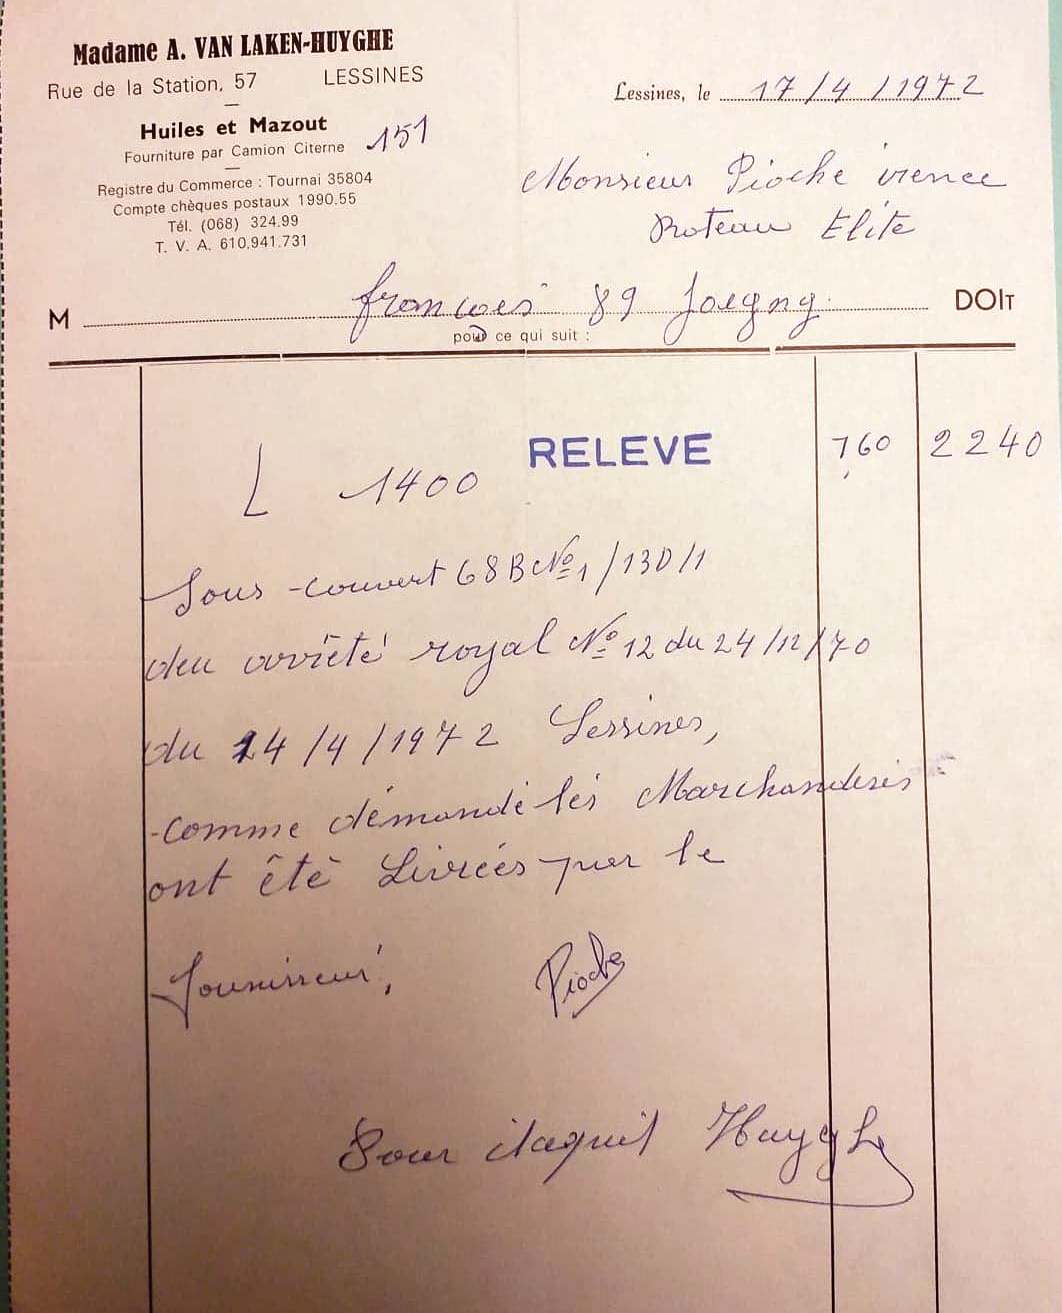 Madame A. VAN LAKEN-HUYGHE
Rue de la Station, 57 LESSINES
Huiles et Mazout
Fourniture par Camion Citerne 151
Registre du Commerce : Tournai 35804
Compte chèques postaux 1990.55
Tél. (068) 324.99
T. V. A. 610.941.731
Lessines, le 17/4/1972
Monsieur Pioche
Elite
M 89 DOIT
pour ce qui suit :
RELEVE 2240
L 1400
Sous-couvert 68B No 1/130/1
arrêté royal No 12 du 24/12/70
du 14/4/1972 Lessines,
comme démandé lés Marchandisés
ont êtè Livrées par le
founisseur,
Pioche
Pour Huyghe